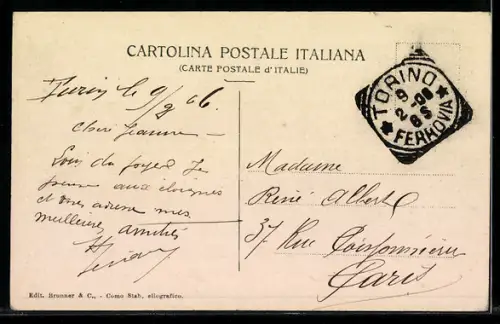 CARTOLINA POSTALE ITALIANA
(CARTE POSTALE d'ITALIE)
TORINO
2 9-06 8S
FERROVIA
Turin le 9/9 06
Chère Jeanne
Loin du foyer Je
pense aux éloignés
et vous adresse mes
meilleures amitiés
Madame
René Albert
37 Rue Poissonnière
Paris
Edit. Brunner & C., - Como Stab. eliografico.